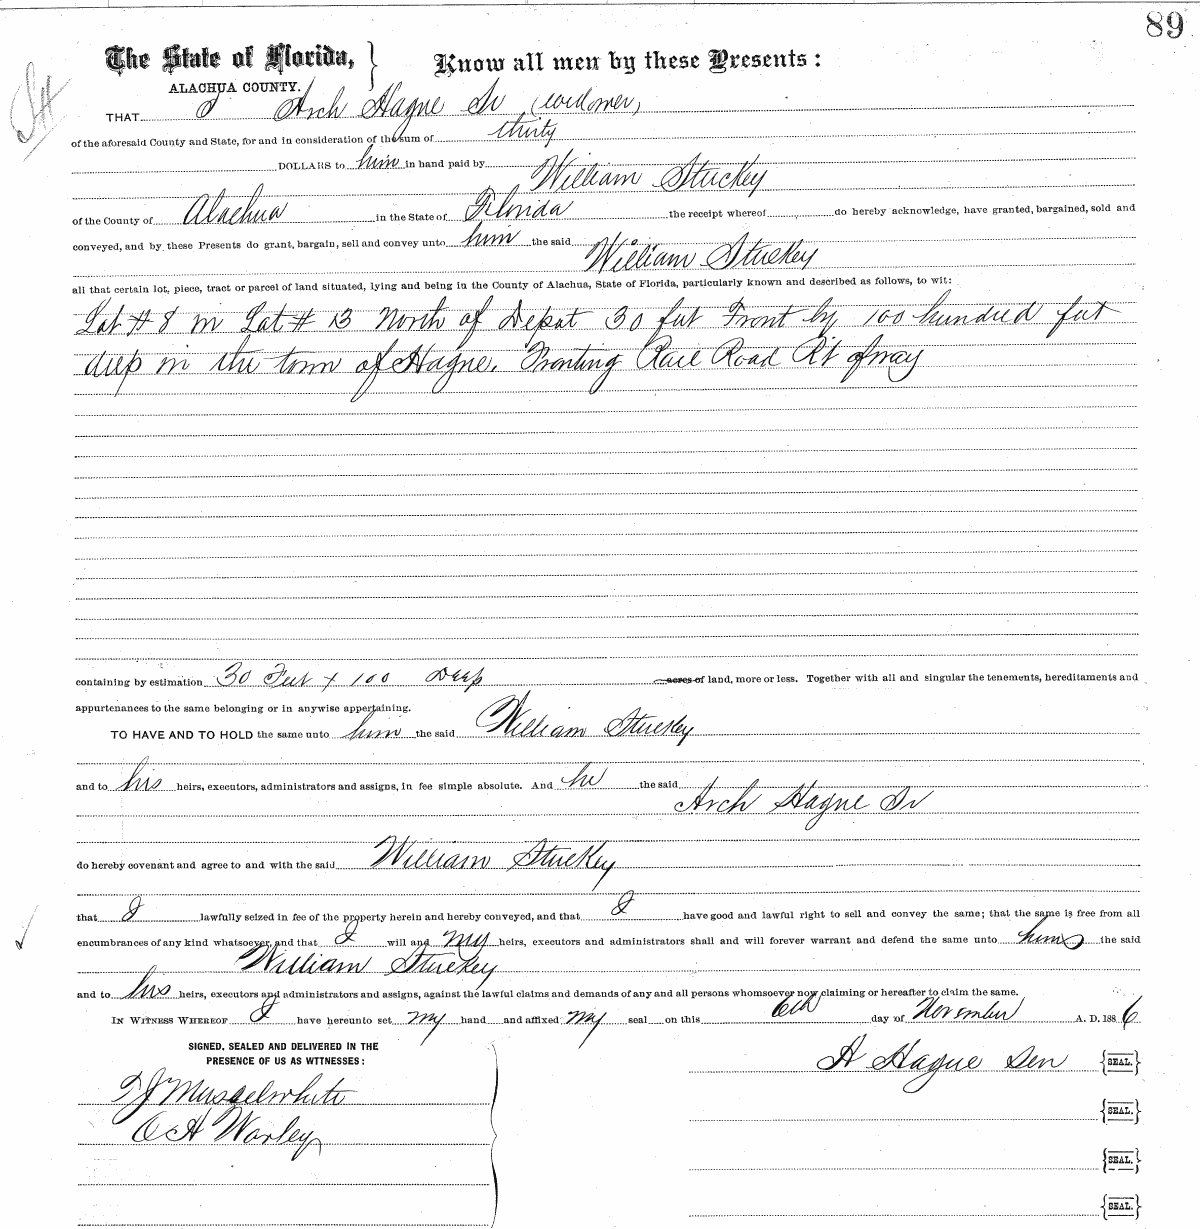 89
The State of Florida, } Know all men by these Presents:
ALACHUA COUNTY.
THAT I Arch Hague Sr (widower)
of the aforesaid County and State, for and in consideration of the sum of thirty
DOLLARS to him in hand paid by
William Stuckey
of the County of Alachua in the State of Florida the receipt whereof do hereby acknowledge, have granted, bargained, sold and
conveyed, and by these Presents do grant, bargain, sell and convey unto him the said
William Stuckey
all that certain lot, piece, tract or parcel of land situated, lying and being in the County of Alachua, State of Florida, particularly known and described as follows, to wit:
Lot # 8 in Lot # 13 North of Depot 30 feet Front by 100 hundred feet
deep in the town of Hague. Fronting Rail Road Rt of way
containing by estimation 30 Feet x 100 Deep acres of land, more or less. Together with all and singular the tenements, hereditaments and
appurtenances to the same belonging or in anywise appertaining.
TO HAVE AND TO HOLD the same unto him the said William Stuckey
and to his heirs, executors, administrators and assigns, in fee simple absolute. And he the said
Arch Hague Sr
do hereby covenant and agree to and with the said William Stuckey
that I lawfully seized in fee of the property herein and hereby conveyed, and that I have good and lawful right to sell and convey the same; that the same is free from all
encumbrances of any kind whatsoever, and that I will and my heirs, executors and administrators shall and will forever warrant and defend the same unto him the said
William Stuckey
and to his heirs, executors and administrators and assigns, against the lawful claims and demands of any and all persons whomsoever now claiming or hereafter to claim the same.
IN WITNESS WHEREOF I have hereunto set my hand and affixed my seal on this 6th day of November A. D. 188 6
SIGNED, SEALED AND DELIVERED IN THE
PRESENCE OF US AS WITNESSES:
A Hague Sen {SEAL.}
T J Musselwhite
{SEAL.}
O H Worley
{SEAL.}
{SEAL.}